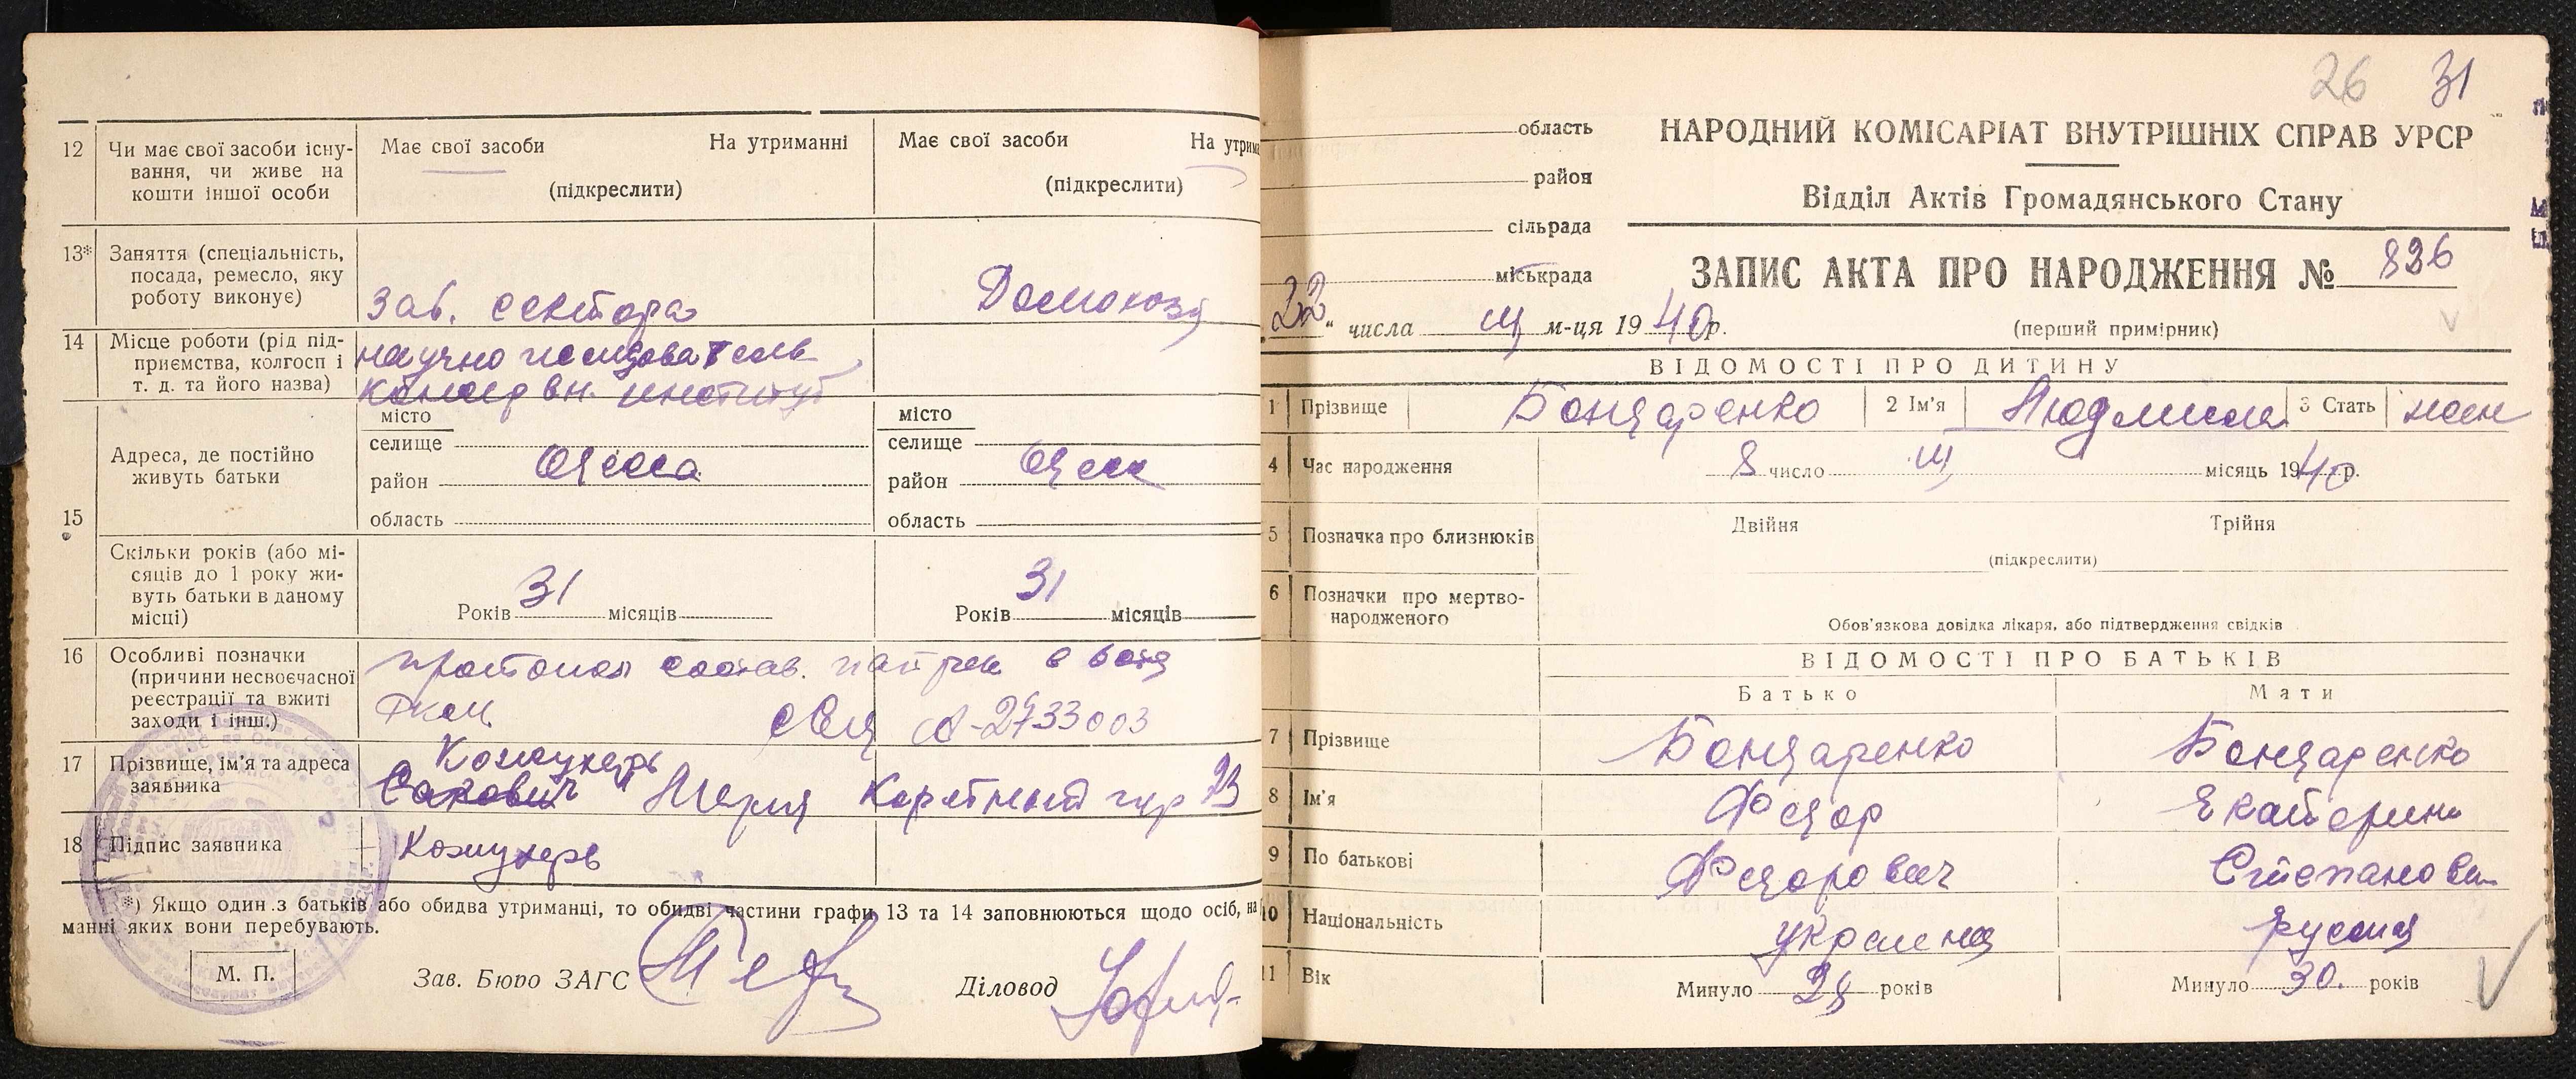 12 Чи має свої засоби існу-
вання, чи живе на
кошти іншої особи
Має свої засоби На утриманні
(підкреслити)
Має свої засоби На утрима
(підкреслити)
13* Заняття (спеціальність,
посада, ремесло, яку
роботу виконує)
Зав. сектора
Домохоз
14 Місце роботи (рід під-
приємства, колгосп і
т. д. та його назва)
научно исследователь
консервн. институт
15 Адреса, де постійно
живуть батьки
місто
селище
район Одесса
область
місто
селище
район Одесса
область
Скільки років (або мі-
сяців до 1 року жи-
вуть батьки в даному
місці)
Років 31 місяців
Років 31 місяців
16 Особливі позначки
(причини несвоєчасної
реєстрації та вжиті
заходи і інш.)
протокол состав.
А-2733003
17 Прізвище, ім'я та адреса
заявника
Кожухарь
Мария Каретный пер 23
18 Підпис заявника
Кожухарь
*) Якщо один з батьків або обидва утриманці, то обидві частини графи 13 та 14 заповнюються щодо осіб, на
манні яких вони перебувають.
М. П.
Зав. Бюро ЗАГС
Діловод
26 31
область
район
сільрада
міськрада
НАРОДНИЙ КОМІСАРІАТ ВНУТРІШНІХ СПРАВ УРСР
Відділ Актів Громадянського Стану
ЗАПИС АКТА ПРО НАРОДЖЕННЯ № 836
22 " числа III м-ця 1940р.
(перший примірник)
ВІДОМОСТІ ПРО ДИТИНУ
1 Прізвище Бондаренко 2 Ім'я Людмила 3 Стать жен
4 Час народження 8 число III місяць 1940 р.
5 Позначка про близнюків Двійня Трійня
(підкреслити)
6 Позначки про мертво-
народженого
Обов'язкова довідка лікаря, або підтвердження свідків
ВІДОМОСТІ ПРО БАТЬКІВ
Батько Мати
7 Прізвище Бондаренко Бондаренко
8 Ім'я Федор Екатерина
9 По батькові Федорович Степановн
10 Національність украинец русская
11 Вік Минуло років Минуло 30. років